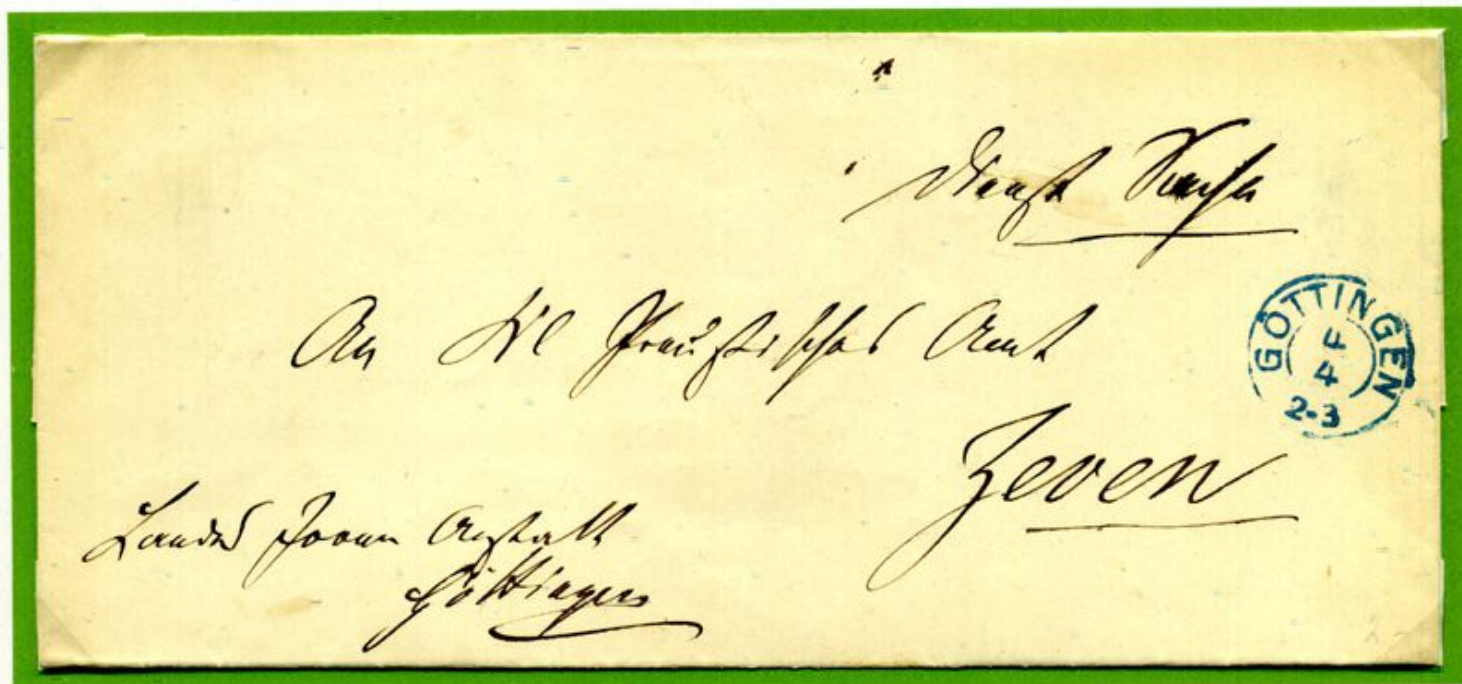 Dienst Sache
An Kl Preußisches Amt
GÖTTINGEN
4
4
2-3
Zeven
Landes Irren Anstalt
Göttingen